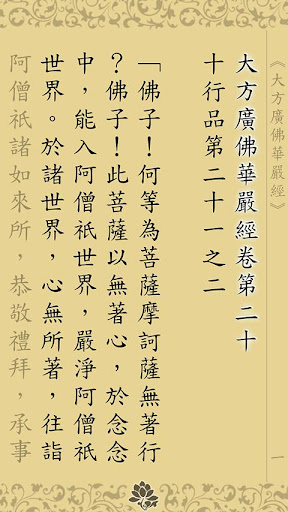 《大方廣佛華嚴經》
一
大方廣佛華嚴經卷第二十
十行品第二十一之二
「佛子！何等為菩薩摩訶薩無著行
？佛子！此菩薩以無著心，於念念
中，能入阿僧祇世界，嚴淨阿僧祇
世界。於諸世界，心無所著，往詣
阿僧祇諸如來所，恭敬禮拜，承事